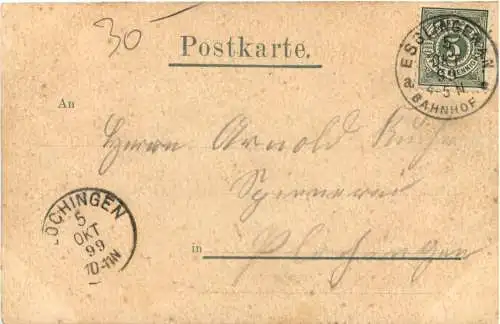 30
Postkarte.
5
ESSLINGEN A/N
a
4-5 N
BAHNHOF
An
Herrn Arnold
Spinnerei
in Plochingen
LOCHINGEN
5
OKT
99
10-11N